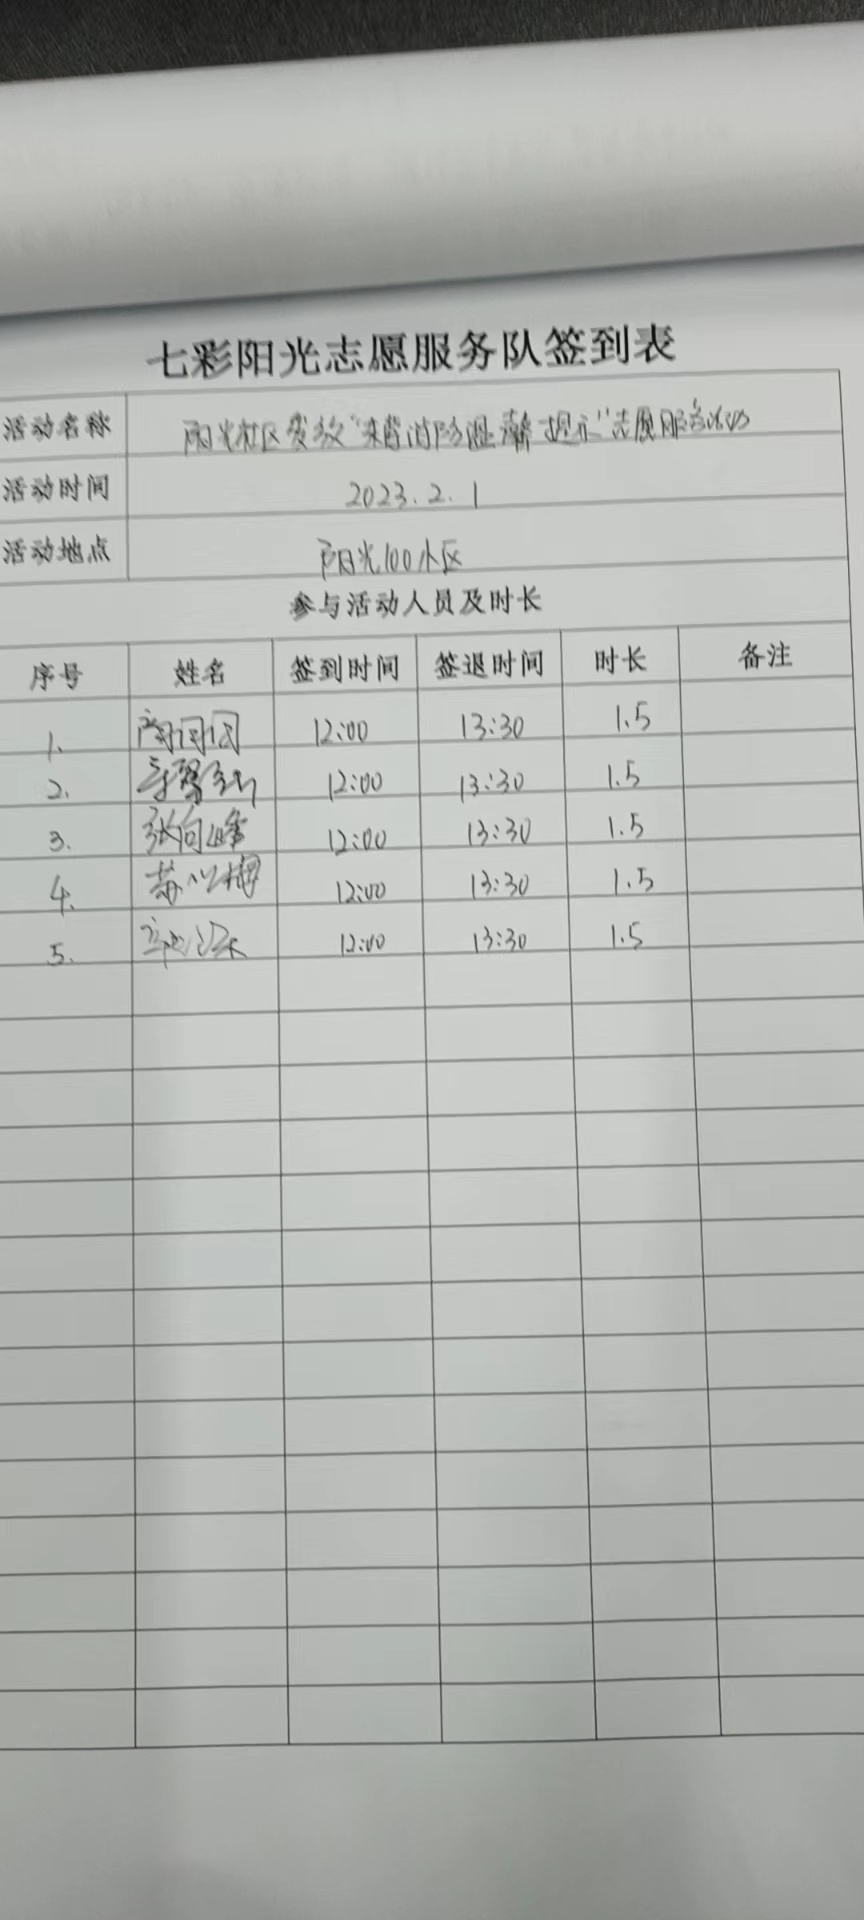 七彩阳光志愿服务队签到表
活动名称 阳光社区发放"消防温馨提示"志愿服务活动
活动时间 2023.2.1
活动地点 阳光100小区
参与活动人员及时长
序号 姓名 签到时间 签退时间 时长 备注
1. 12:00 13:30 1.5
2. 12:00 13:30 1.5
3. 张向峰 12:00 13:30 1.5
4. 12:00 13:30 1.5
5. 12:00 13:30 1.5